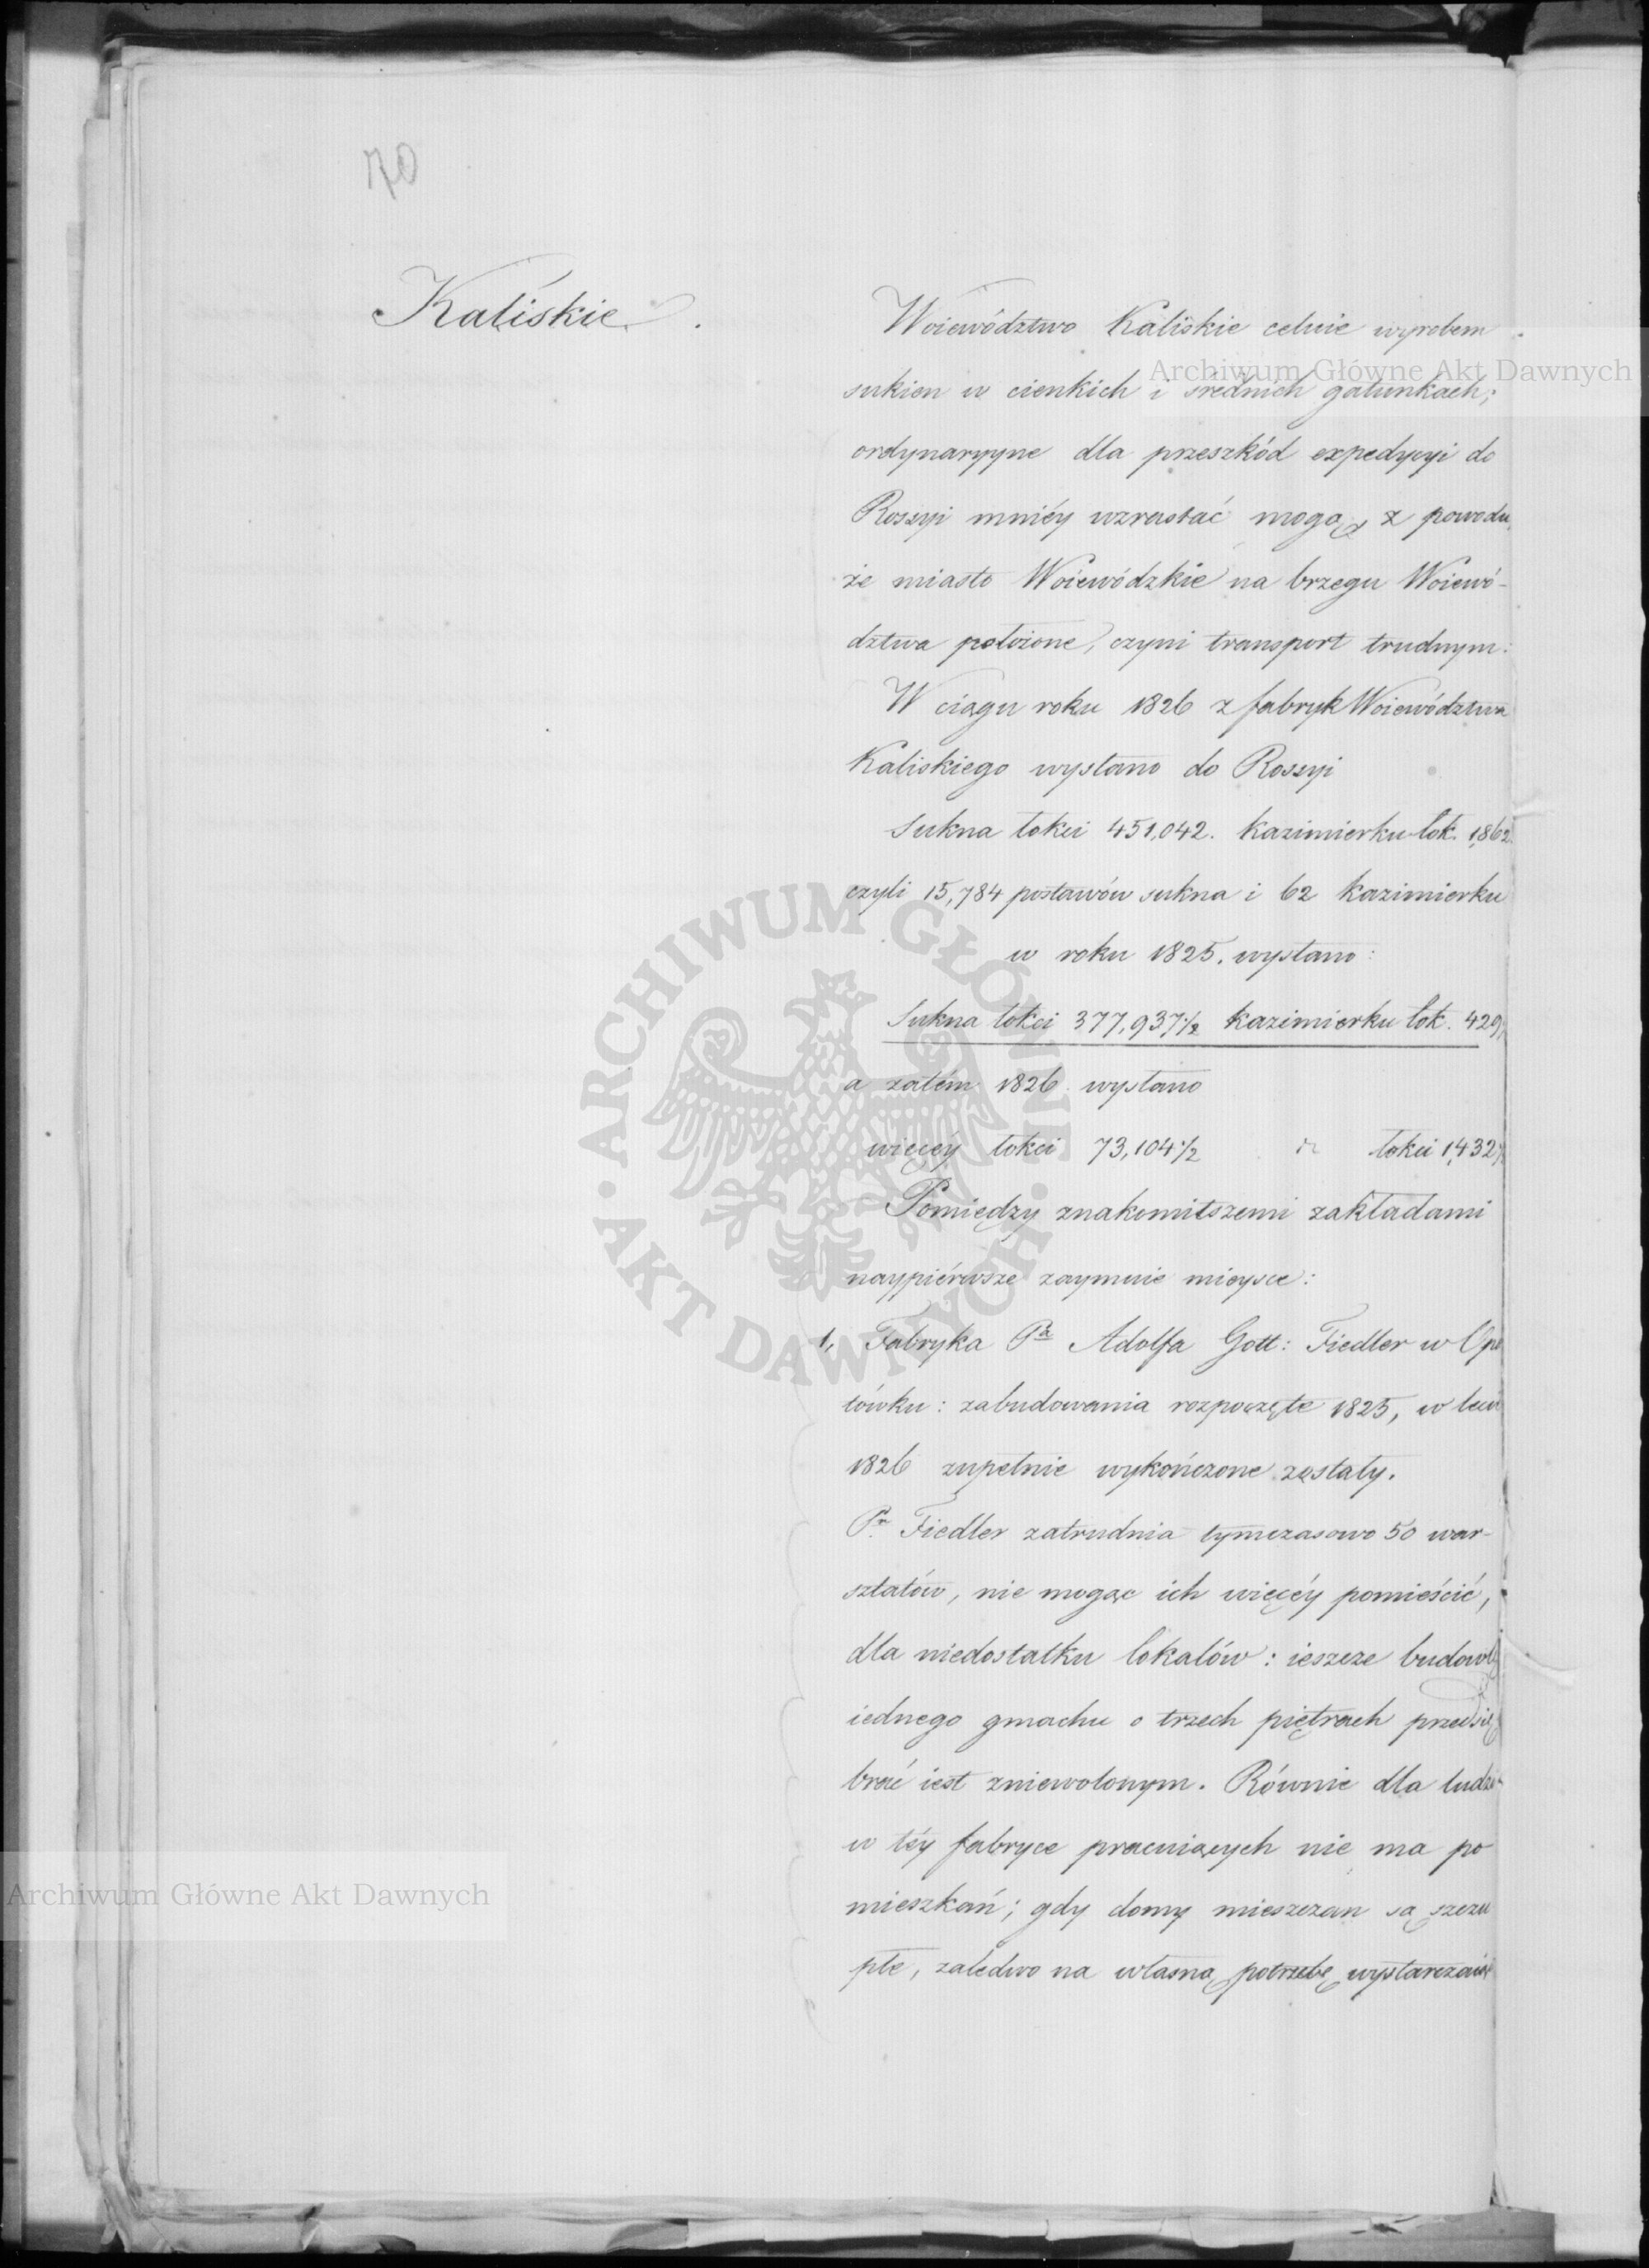 70
Kaliskie.
Woiewództwo Kaliskie celuie wyrobem
sukien w cienkich i średnich gatunkach;
ordynaryyne dla przeszkód expedycyi do
Rossyi mniéy wzrastać mogą, z powodu,
że miasto Woiewódzkie na brzegu Woiewó-
dztwa położone, czyni transport trudnym:
W ciągu roku 1826 z fabryk Woiewództwa
Kaliskiego wysłano do Rossyi
Sukna łokci 451,042. Kazimierku łok. 1,862.
czyli 15,784 postawów sukna i 62 Kazimierku
w roku 1825. wysłano:
Sukna łokci 377,937 1/2 Kazimierku łok. 429
a zatém 1826 wysłano
więcéy łokci 73,104 1/2 łokci 1,432
Pomiędzy znakomitszemi zakładami
naypiérwsze zaymuie mieysce:
1, Fabryka Pa Adolfa Gott: Fiedler w Opa
tówku: zabudowania rozpoczęte 1825, w lecie
1826 zupełnie wykończone zostały.
Pn Fiedler zatrudnia tymczasowo 50 war-
sztatów, nie mogąc ich więcéy pomieścić,
dla niedostatku lokalów: ieszcze budowlę
iednego gmachu o trzech piętrach przedsię
brać iest zniewolonym. Równie dla ludzi
w téy fabryce pracuiących nie ma po
mieszkań; gdy domy mieszczan są szczu
płe, zaledwo na własną potrzebę wystarczaią
Archiwum Główne Akt Dawnych
Archiwum Główne Akt Dawnych
ARCHIWUM GŁÓWNE · AKT DAWNYCH ·